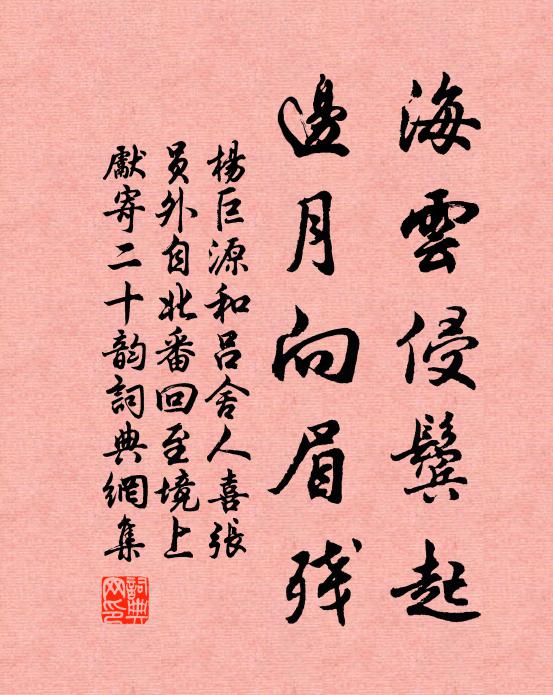 海雲侵鬢起
邊月向眉残
楊巨源和吕舍人喜張
员外自北番回至境上
獻寄二十韵詞典網集
詞典网印